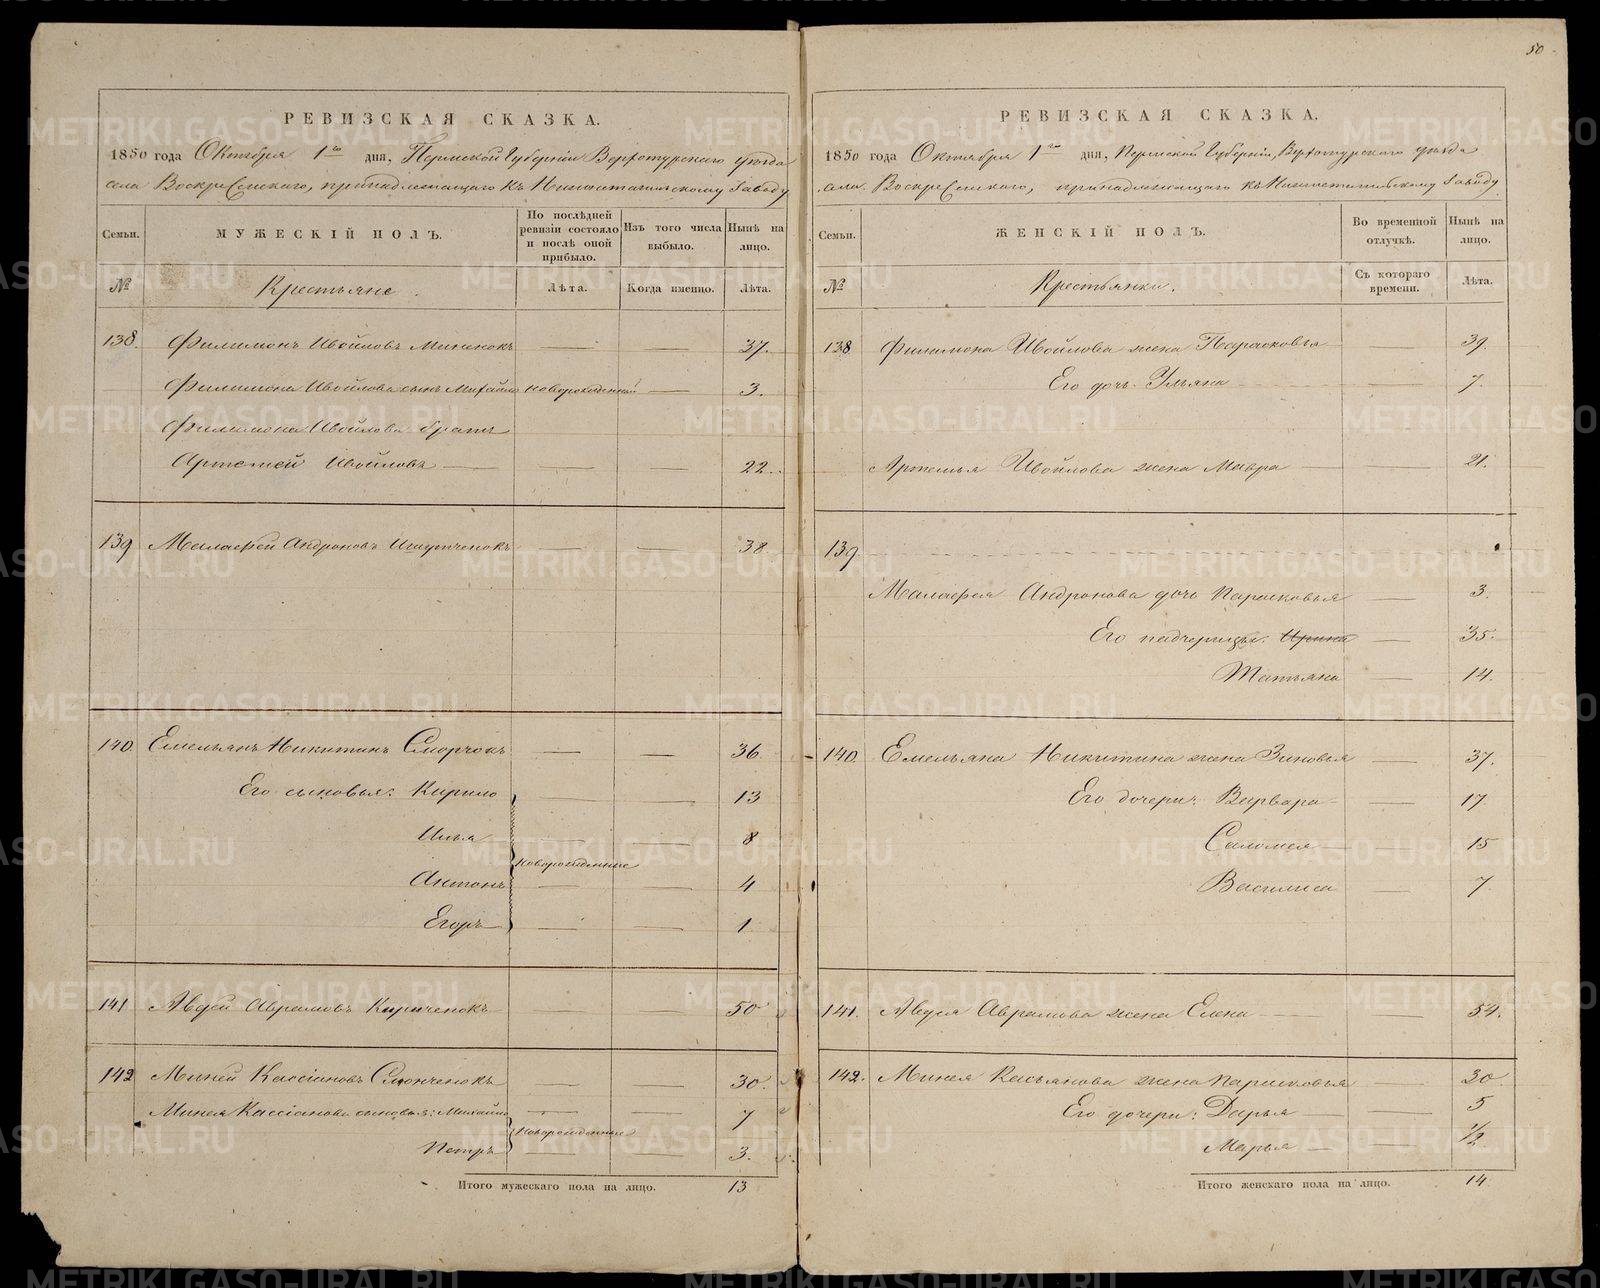 50
РЕВИЗСКАЯ СКАЗКА.
1850 года Октября 1го дня, Пермской Губерніи Верхотурскаго уѣзда
села Воскресенскаго, принадлежащаго къ Нижнетагильскому Заводу
Семьи. МУЖЕСКІЙ ПОЛЪ. По послѣдней ревизіи состояло и послѣ оной прибыло. Изъ того числа выбыло. Нынѣ на лицо.
№ Крестьяне. Лѣта. Когда именно. Лѣта.
138. Филимонъ Ивойловъ 37.
Филимона Ивойлова сынъ Михайло новорожденный 3.
Филимона Ивойлова братъ
Артемей Ивойловъ 22.
139 Малафей Андроновъ 38
140 Емельянъ Никитинъ Сморчокъ 36
Его сыновья: Кирило 13
Илья 8
новорожденные
Антонъ 4
Егоръ 1
141 Авдей Аврамовъ Кириченокъ 50
142 Миней Кассіановъ 30.
Минея Кассіанова сыновья: Михайло 7
новорожденные
Петръ 3.
Итого мужескаго пола на лицо. 13
РЕВИЗСКАЯ СКАЗКА.
1850 года Октября 1го дня, Пермской Губерніи, Верхотурскаго уѣзда
села Воскресенскаго, принадлежащаго къ Нижнетагильскому Заводу
Семьи. ЖЕНСКІЙ ПОЛЪ. Во временной отлучкѣ. Нынѣ на лицо.
№ Крестьянки. Съ котораго времени. Лѣта.
138 Филимона Ивойлова жена Парасковья 39.
Его дочь Ульяна 7.
Артемья Ивойлова жена Мавра 21.
139.
Малафея Андронова дочь Парасковья 3.
Его падчерицы: Ирина 35.
Татьяна 14.
140 Емельяна Никитина жена Зиновья 37.
Его дочери: Варвара 17.
Саломея 15
Василиса 7.
141. Авдея Аврамова жена Елена 54.
142. Минея Касьянова жена Парасковья 30.
Его дочери: Дарья 5
Марья 1/2
Итого женскаго пола на лицо. 14
METRIKI.GASO-URAL.RU